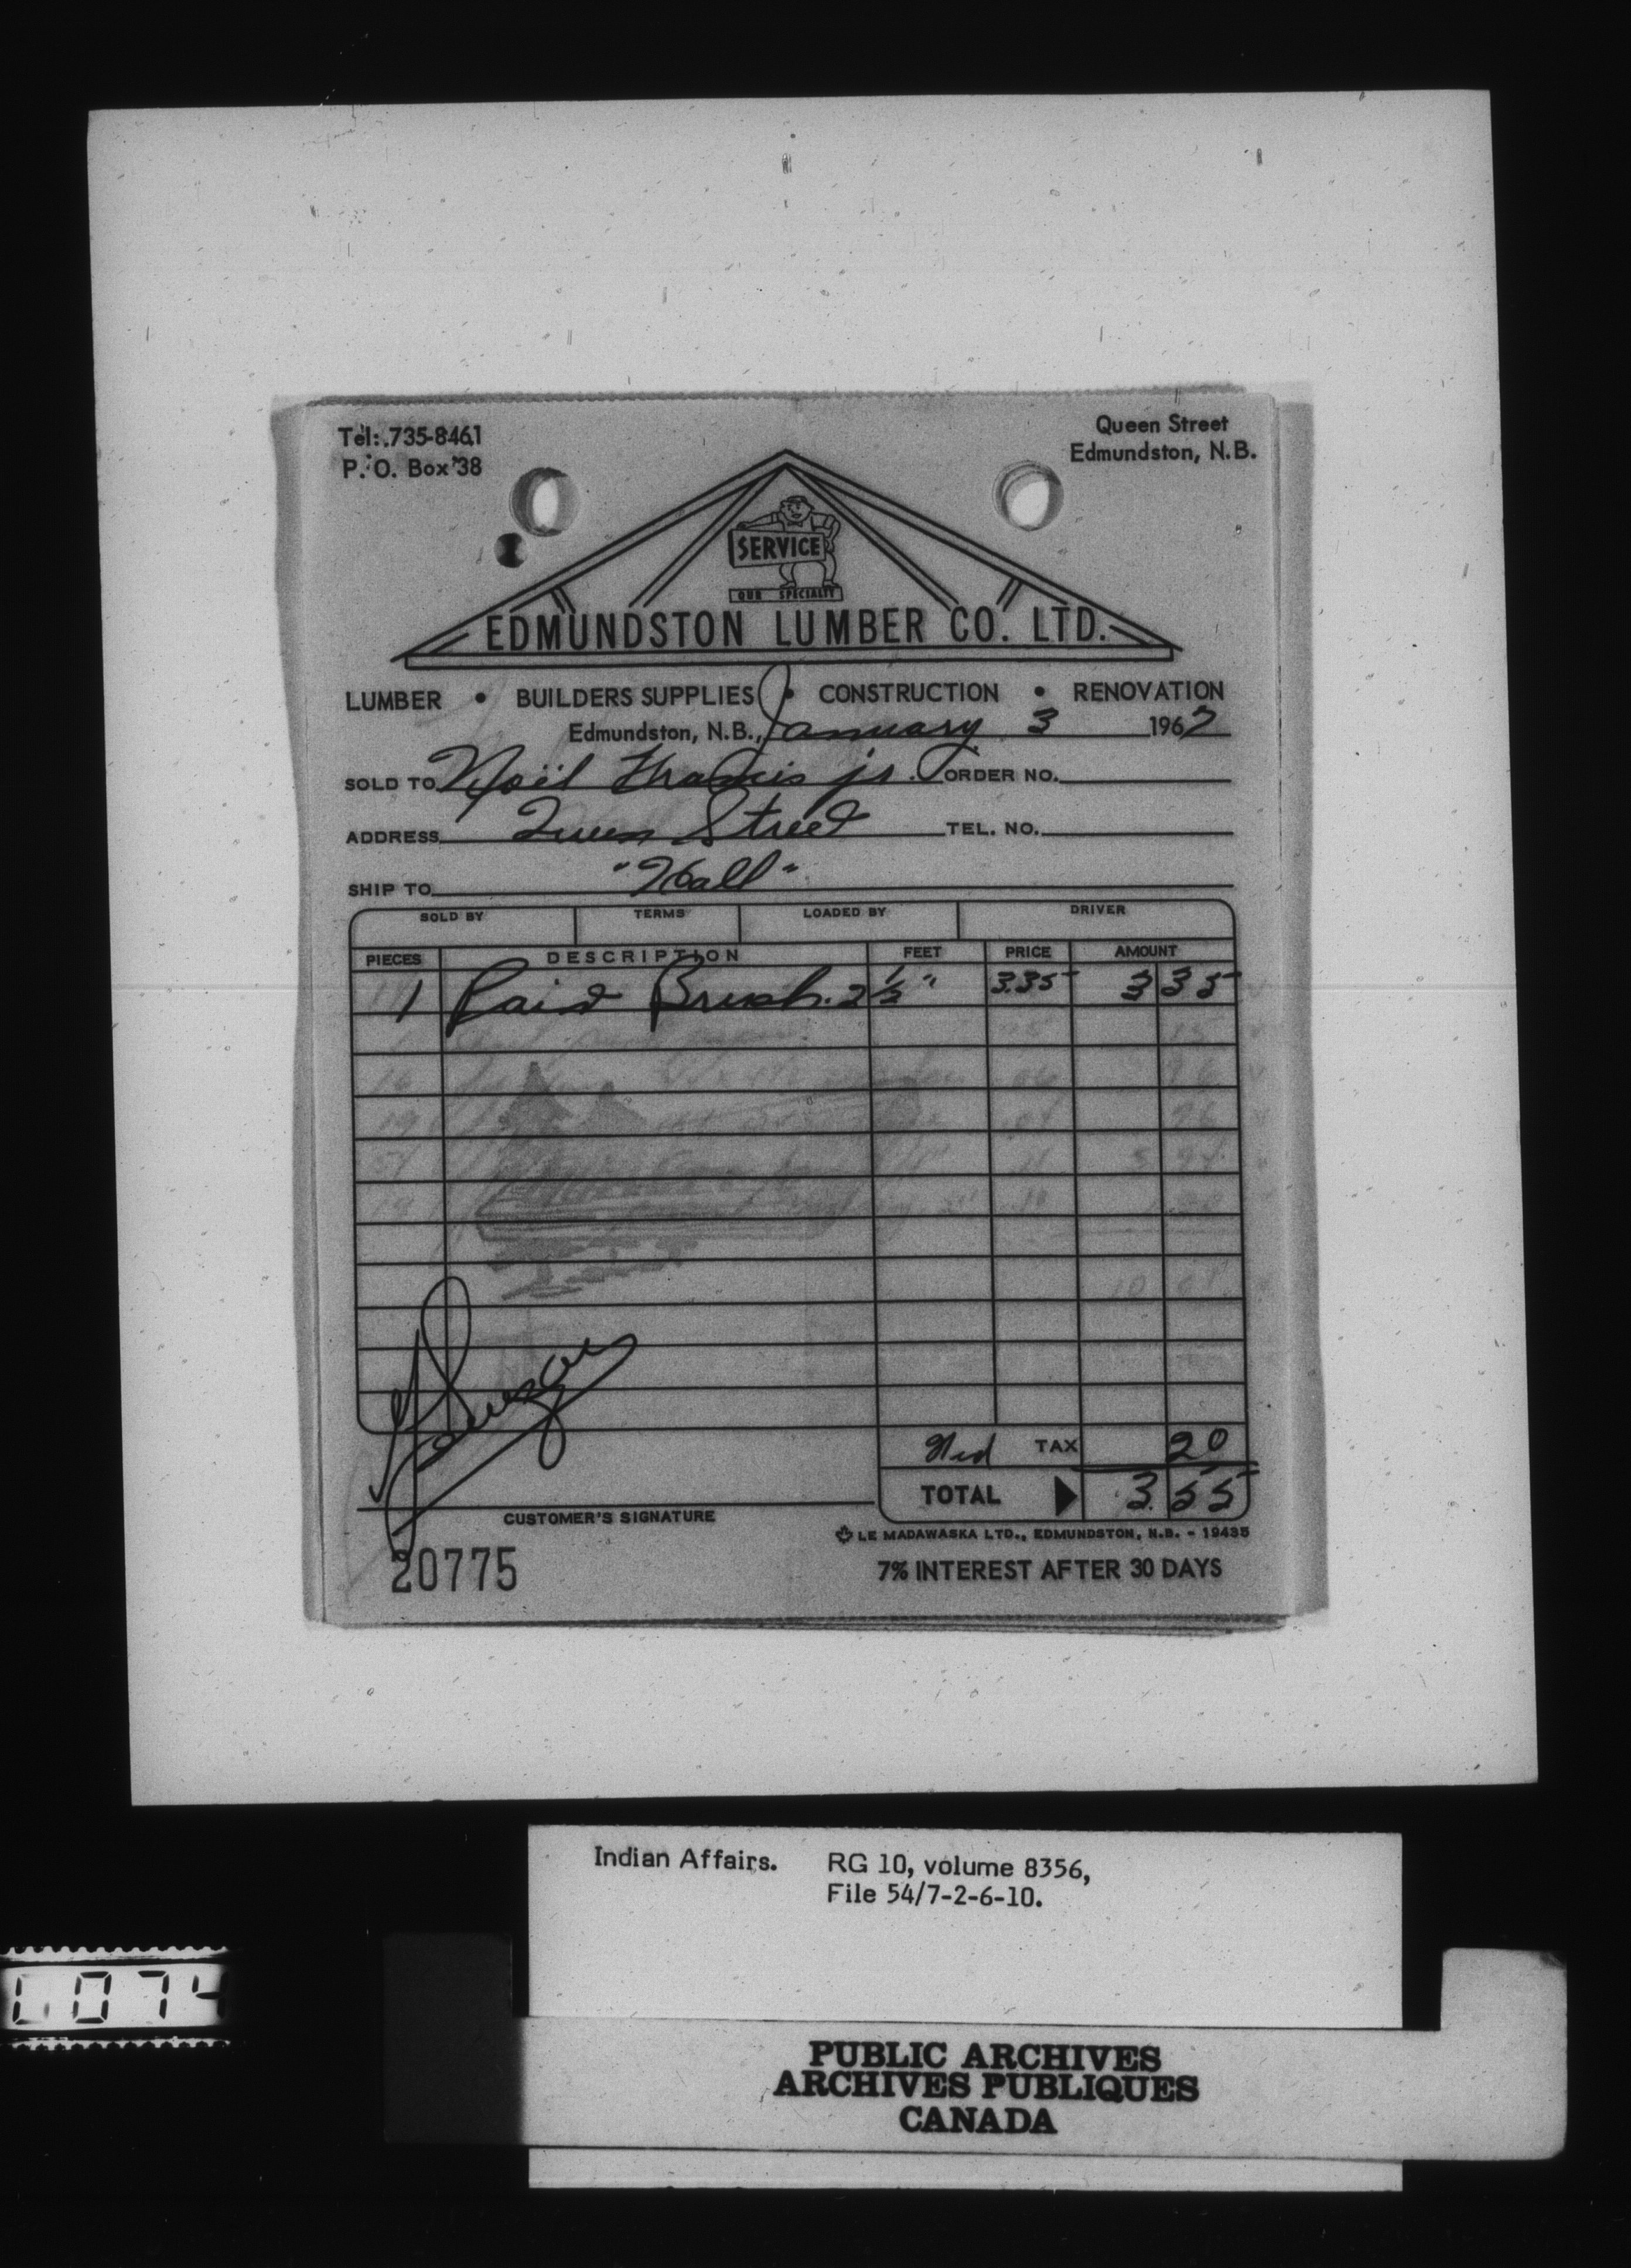 Tel: 735-8461
P. O. Box 38
Queen Street
Edmundston, N.B.
SERVICE
OUR SPECIALTY
EDMUNDSTON LUMBER CO. LTD.
LUMBER • BUILDERS SUPPLIES • CONSTRUCTION • RENOVATION
Edmundston, N.B., January 3 1967
SOLD TO Noël Francis jr. ORDER NO.
ADDRESS Queen Street TEL. NO.
SHIP TO "Hall"
SOLD BY TERMS LOADED BY DRIVER
PIECES DESCRIPTION FEET PRICE AMOUNT
1 Paint Brush 2 1/2" 3.35 3 35
TAX 20
TOTAL 3.55
CUSTOMER'S SIGNATURE
LE MADAWASKA LTD., EDMUNDSTON, N.B. - 19435
20775
7% INTEREST AFTER 30 DAYS
Indian Affairs. RG 10, volume 8356,
File 54/7-2-6-10.
074
PUBLIC ARCHIVES
ARCHIVES PUBLIQUES
CANADA